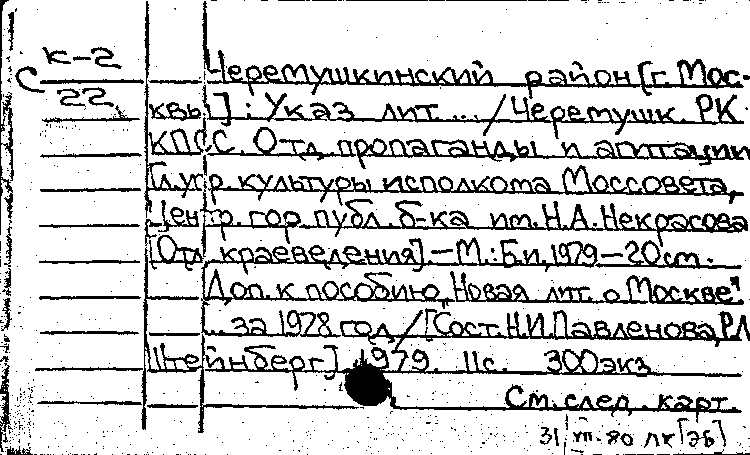 К-2
С
22
Черемушкинский район [г. Мос-
квы] : Указ. лит. ... / Черемушк. РК
КПСС. Отд. пропаганды и агитации,
Гл. упр. культуры исполкома Моссовета,
Центр. гор. публ. б-ка им. Н.А. Некрасова
[Отд. краеведения]. – М.: Б.и., 1979 – 20см.
Доп. к пособию "Новая лит. о Москве"
... за 1978 год / [Сост. Н.И. Павленова, Р.Л.
Штейнберг]. 1979. 11с. 300экз.
См. след. карт.
31 80 лк [ЭБ]